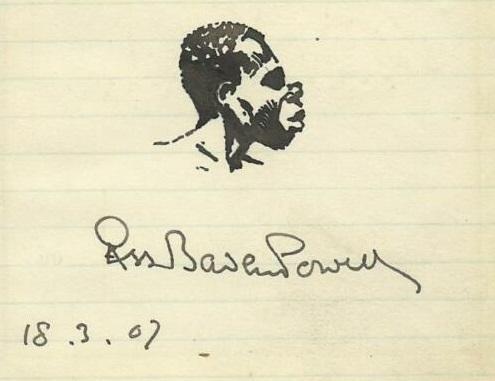 RSS Baden Powell
18.3.07